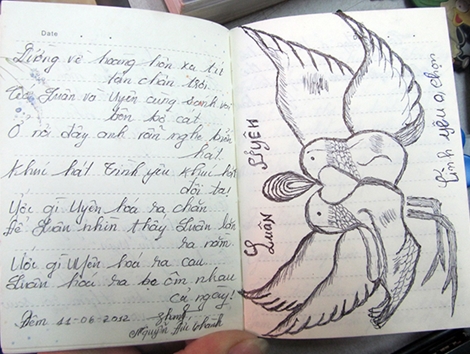 Date
Bóng về hoàng hôn xa tít
tận chân trời.
Có Luân và Uyên cùng sánh vai
bên bờ cát.
Ở nơi đây anh vẫn nghe biển
hát.
Khúc hát tình yêu khúc hát
đôi ta!
Ước gì Uyên hoá ra chăn
Để Luân nhìn thấy Luân lăn
ra nằm.
Ước gì Uyên hoá ra cau
Luân hoá ra bẹ ôm nhau
cả ngày!
Đêm 11-06-2012
Nguyễn
LUYÊN
Luân
Tình yêu a, chọn